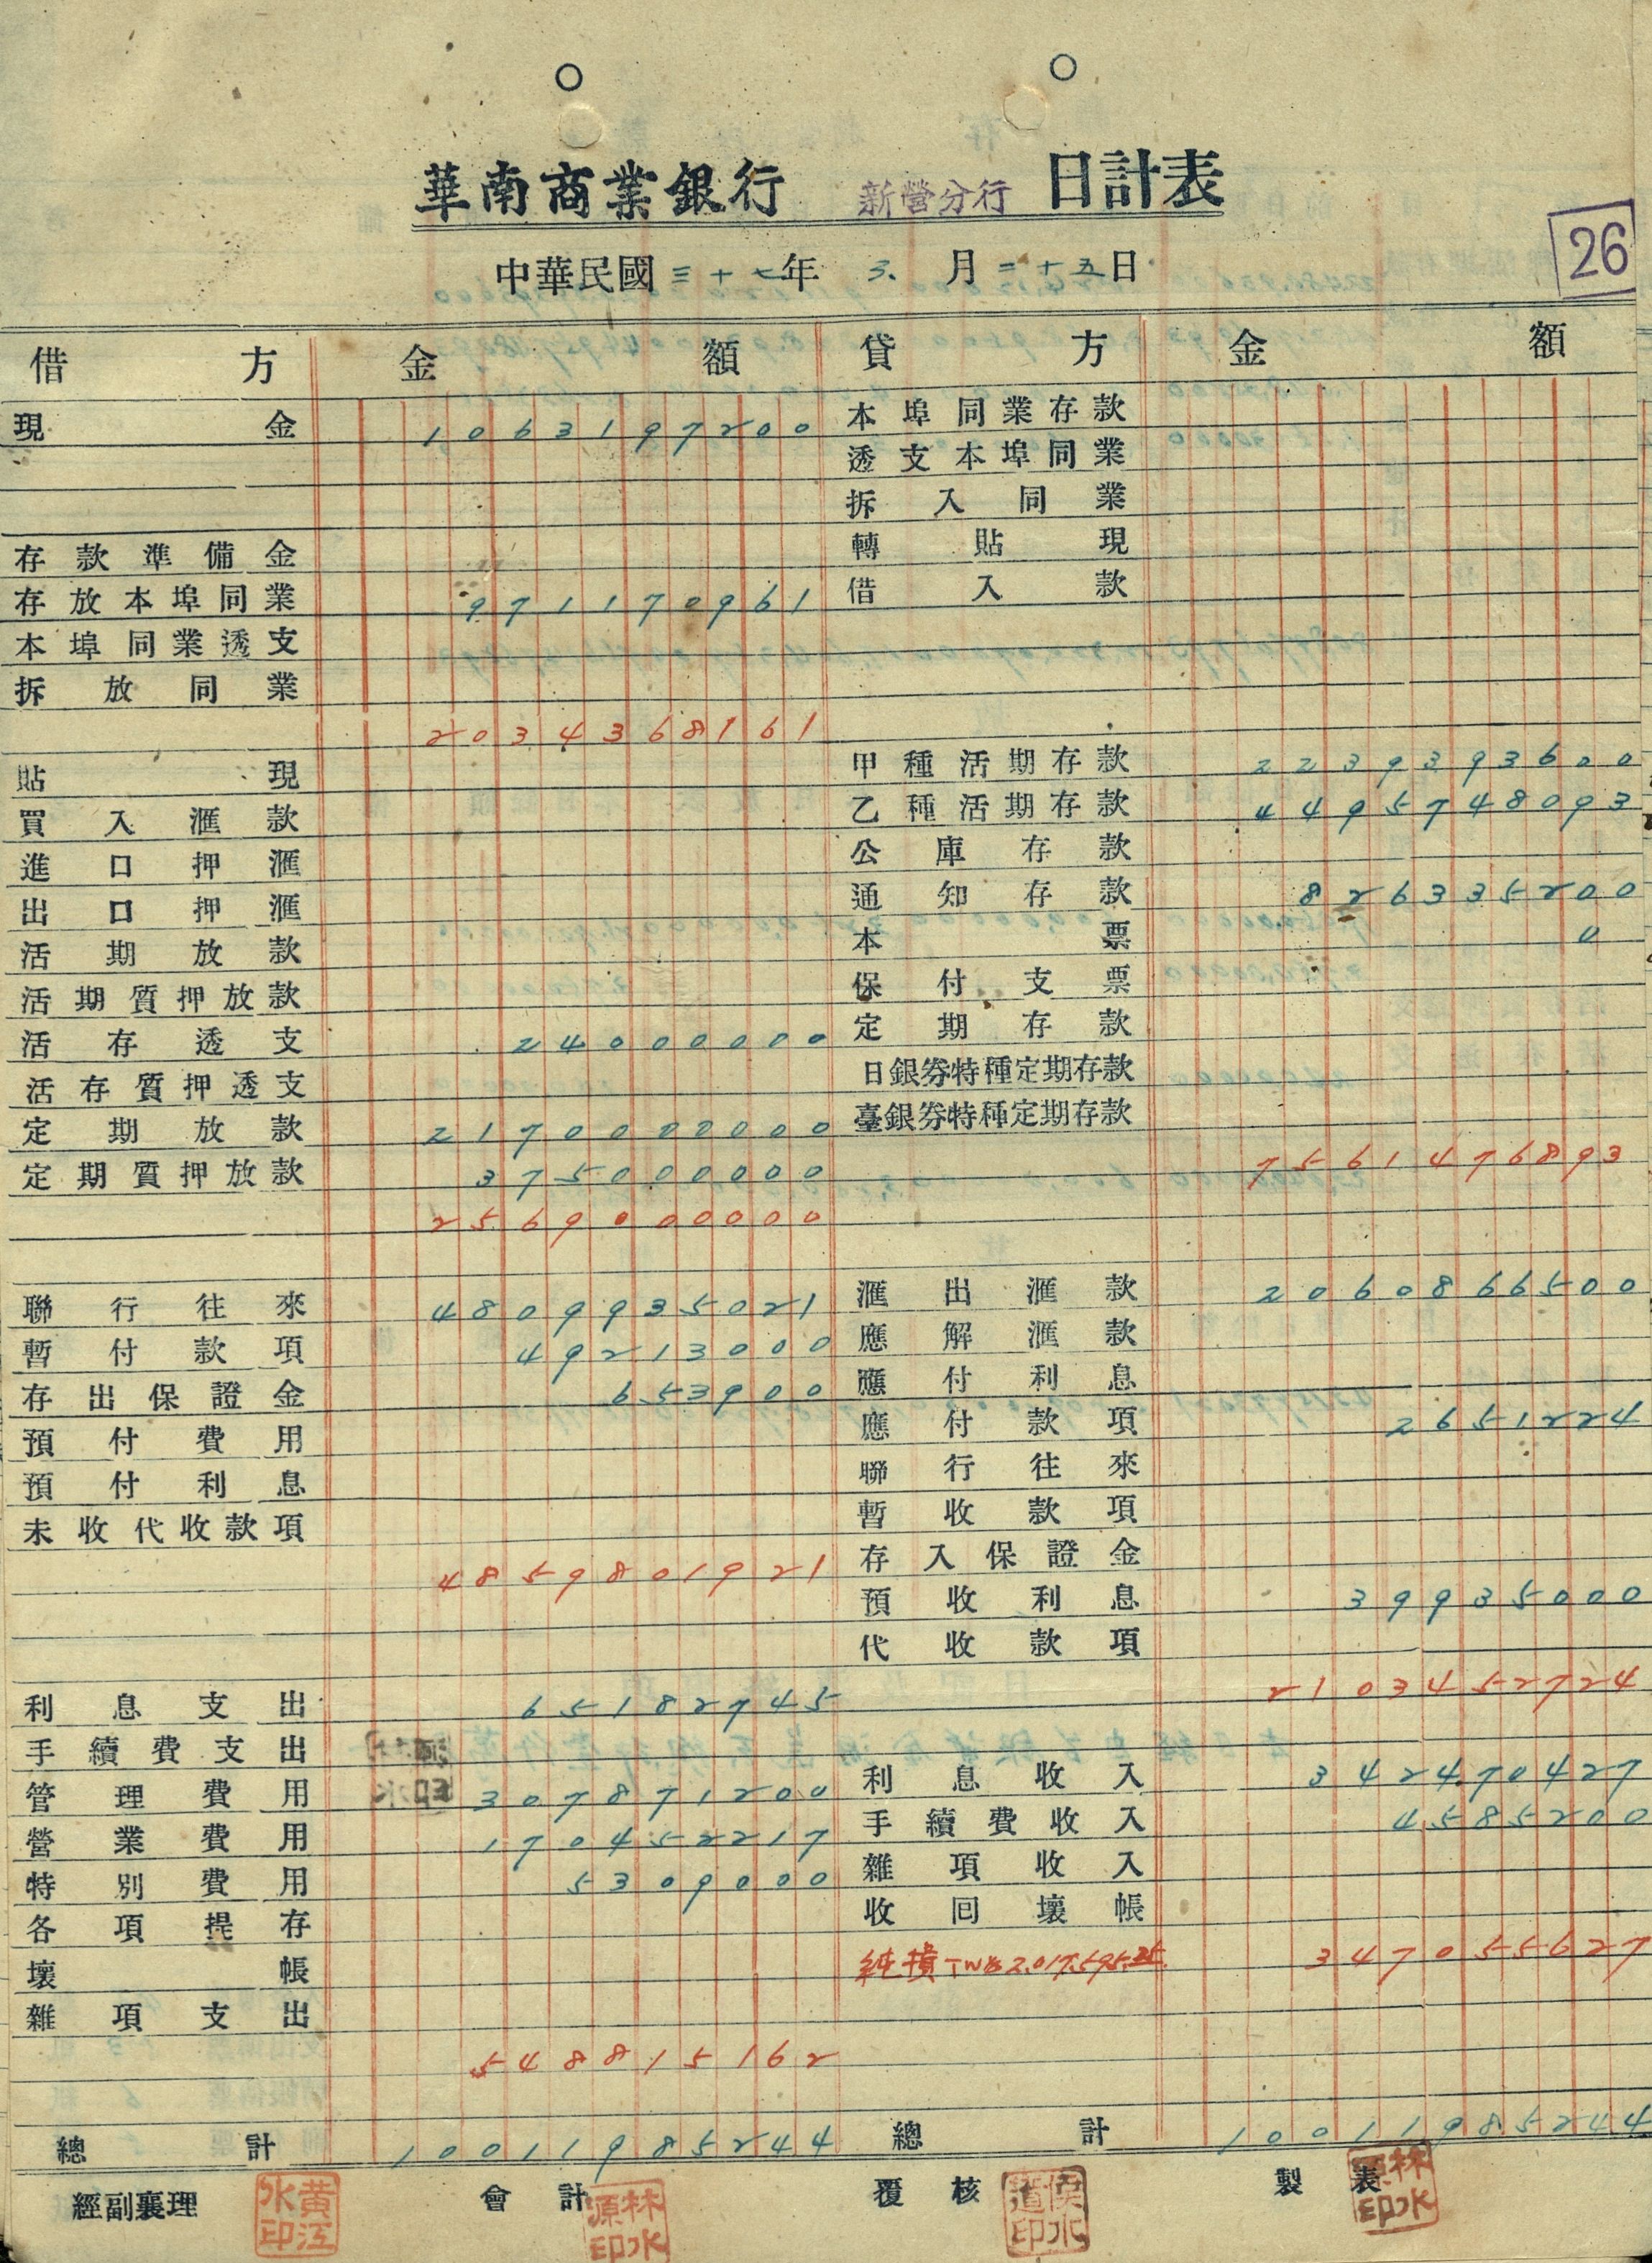 華南商業銀行 新營分行 日計表
26
中華民國三十七年 3. 月二十五日
借方 金額 貸方 金額
現金 1063197200 本埠同業存款
透支本埠同業
拆入同業
存款準備金 轉貼現
存放本埠同業 971170961 借入款
本埠同業透支
拆放同業
2034368161
貼現 甲種活期存款 2239393600
買入滙款 乙種活期存款 4495748093
進口押滙 公庫存款
出口押滙 通知存款 826335200
活期放款 本票 0
活期質押放款 保付支票
活存透支 24000000 定期存款
活存質押透支 日銀券特種定期存款
定期放款 2170000000 臺銀券特種定期存款
定期質押放款 375000000 7561476893
2569000000
聯行往來 4809935021 滙出滙款 2060866500
暫付款項 49213000 應解滙款
存出保證金 653900 應付利息
預付費用 應付款項 2651224
預付利息 聯行往來
未收代收款項 暫收款項
4859801921 存入保證金
預收利息 39935000
代收款項
利息支出 65182745 2103452724
手續費支出
管理費用 307871200 利息收入 342470427
營業費用 170452217 手續費收入 4585200
特別費用 5309000 雜項收入
各項提存 收回壞帳
壞帳 純損TW$2,017,595.35 347055627
雜項支出
548815162
總計 10011985244 總計 10011985244
經副襄理 黃江水印 會計 林水源印 覆核 製表 林水源印